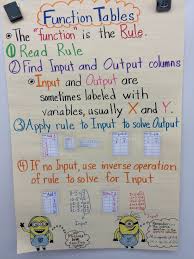 Function Tables
• The "function" is the Rule.
① Read Rule
② Find Input and Output columns
• Input and Output are
sometimes labeled with
variables, usually X and Y.
③ Apply rule to Input to solve Output
④ If no Input, use inverse operation
of rule to solve for Input